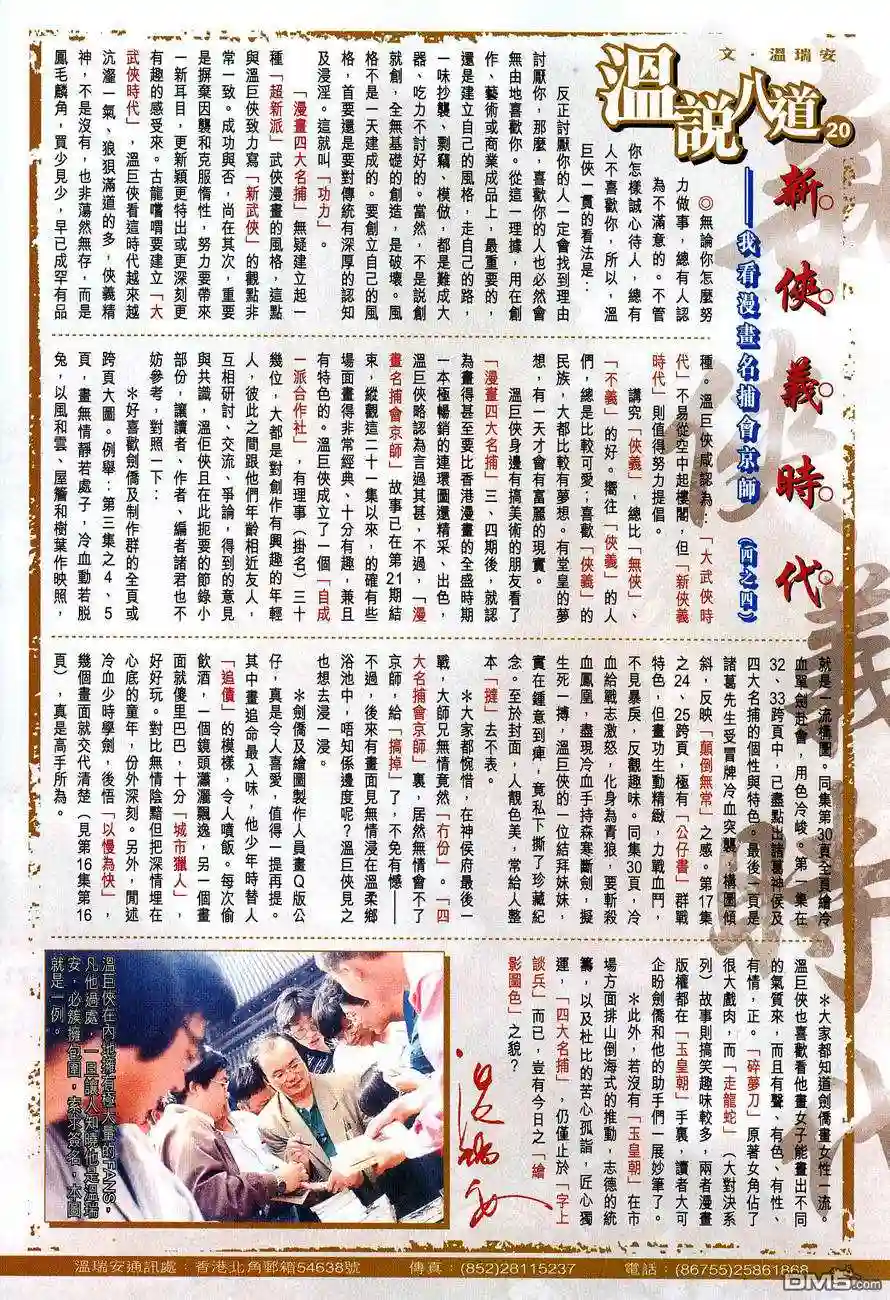 文．溫瑞安
溫說八道20
新俠義時代
——我看漫畫名捕會京師（四之四）
◎無論你怎麼努
力做事，總有人認
為不滿意的。不管
你怎樣誠心待人，總有
人不喜歡你，所以，溫
巨俠一貫的看法是：
反正討厭你的人一定會找到理由
討厭你，那麼，喜歡你的人也必然會
無由地喜歡你。從這一理據，用在創
作、藝術或商業成品上，最重要的，
還是建立自己的風格，走自己的路，
一味抄襲、剽竊、模倣，都是難成大
器、吃力不討好的。當然，不是說創
就創，全無基礎的創造，是破壞。風
格不是一天建成的。要創立自己的風
格，首要還是要對傳統有深厚的認知
及浸淫。這就叫「功力」。
「漫畫四大名捕」無疑建立起一
種「超新派」武俠漫畫的風格，這點
與溫巨俠致力寫「新武俠」的觀點非
常一致。成功與否，尚在其次，重要
是摒棄因襲和克服惰性，努力要帶來
一新耳目，更新穎更特出或更深刻更
有趣的感受來。古龍嚐謂要建立「大
武俠時代」，溫巨俠看這時代越來越
沆瀣一氣、狼狽滿道的多，俠義精
神，不是沒有，也非蕩然無存，而是
鳳毛麟角，買少見少，早已成罕有品
種。溫巨俠咸認為：「大武俠時
代」不易從空中起樓閣，但「新俠義
時代」則值得努力提倡。
講究「俠義」，總比「無俠」、
「不義」的好。嚮往「俠義」的人
們，總是比較可愛；喜歡「俠義」的
民族，大都比較有夢想。有堂皇的夢
想，有一天才會有富麗的現實。
溫巨俠身邊有搞美術的朋友看了
「漫畫四大名捕」三、四期後，就認
為畫得甚至要比香港漫畫的全盛時期
一本極暢銷的連環圖還精采、出色，
溫巨俠略認為言過其甚，不過，「漫
畫名捕會京師」故事已在第21期結
束，縱觀這二十一集以來，的確有些
場面畫得非常經典、十分有趣，兼且
有特色的。溫巨俠成立了一個「自成
一派合作社」，有理事（掛名）三十
幾位，大都是對創作有興趣的年輕
人，彼此之間跟他們年齡相近友人，
互相研討、交流、爭論，得到的意見
與共識，溫佢俠且在此扼要的節錄小
部份，讓讀者、作者、編者諸君也不
妨參考，對照一下：
＊好喜歡劍僑及制作群的全頁或
跨頁大圖。例舉：第三集之4、5
頁，畫無情靜若處子，冷血動若脫
兔，以風和雲、屋簷和樹葉作映照，
就是一流構圖。同集第30頁全頁繪冷
血單劍赴會，用色冷峻。第一集在
32、33跨頁中，已盡點出諸葛神侯及
四大名捕的個性與特色。最後一頁是
諸葛先生受冒牌冷血突襲，構圖傾
斜，反映「顛倒無常」之感。第17集
之24、25跨頁，極有「公仔書」群戰
特色，但畫功生動精緻，力戰血鬥，
不見暴戾，反觀趣味。同集30頁，冷
血給戰志激怒，化身為青狼，要斬殺
血鳳凰，盡現冷血手持森寒斷劍，擬
生死一搏，溫巨俠的一位結拜妹妹，
實在鍾意到痺，竟私下撕了珍藏紀
念。至於封面，人靚色美，常給人整
本「撻」去不表。
＊大家都惋惜，在神侯府最後一
戰，大師兄無情竟然「冇份」。「四
大名捕會京師」裏，居然無情會不了
京師，給「搞掉」了，不免有憾——
不過，後來有畫面見無情浸在溫柔鄉
浴池中，唔知係邊度呢？溫巨俠見之
也想去浸一浸。
＊劍僑及繪圖製作人員畫Q版公
仔，真是令人喜愛，值得一提再提。
其中畫追命最入味，他少年時替人
「追債」的模樣，令人噴飯。每次偷
飲酒，一個鏡頭瀟灑飄逸，另一個畫
面就傻里巴巴，十分「城市獵人」，
好好玩。對比無情陰黯但把深情埋在
心底的童年，份外深刻。另外，閒述
冷血少時學劍，後悟「以慢為快」，
幾個畫面就交代清楚（見第16集第16
頁），真是高手所為。
＊大家都知道劍僑畫女性一流。
溫巨俠也喜歡看他畫女子能畫出不同
的氣質來，而且有聲、有色、有性、
有情，正。「碎夢刀」原著女角佔了
很大戲肉，而「走龍蛇」（大對決系
列）故事則搞笑趣味較多，兩者漫畫
版權都在「玉皇朝」手裏，讀者大可
企盼劍僑和他的助手們一展妙筆了。
＊此外，若沒有「玉皇朝」在市
場方面排山倒海式的推動，志德的統
籌，以及杜比的苦心孤詣，匠心獨
運，「四大名捕」，仍僅止於「字上
談兵」而已，豈有今日之「繪
影圖色」之貌？
溫巨俠在內地擁有極大量的FANS，
凡他過處，一旦讓人知曉他是溫瑞
安，必簇擁包圍，索求簽名，本圖
就是一例。
溫瑞安通訊處：香港北角郵箱54638號　傳真：(852)28115237　電話：(86755)25861868
DM5.com